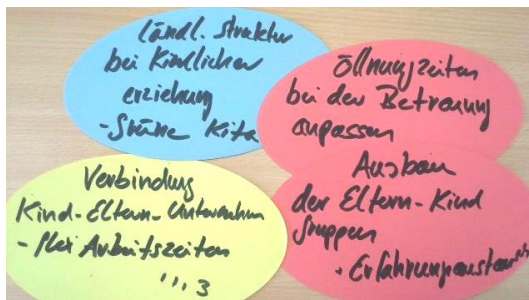 ländl. Struktur
bei Kindlicher
erziehung
- Kita
Öffnungzeiten
bei der Betreuung
anpassen
Verbindung
Kind-Eltern-Unternehm
- flex Arbeitszeiten
,,, 3
Ausbau
der Eltern-Kind
gruppen
- Erfahrungsaustausch